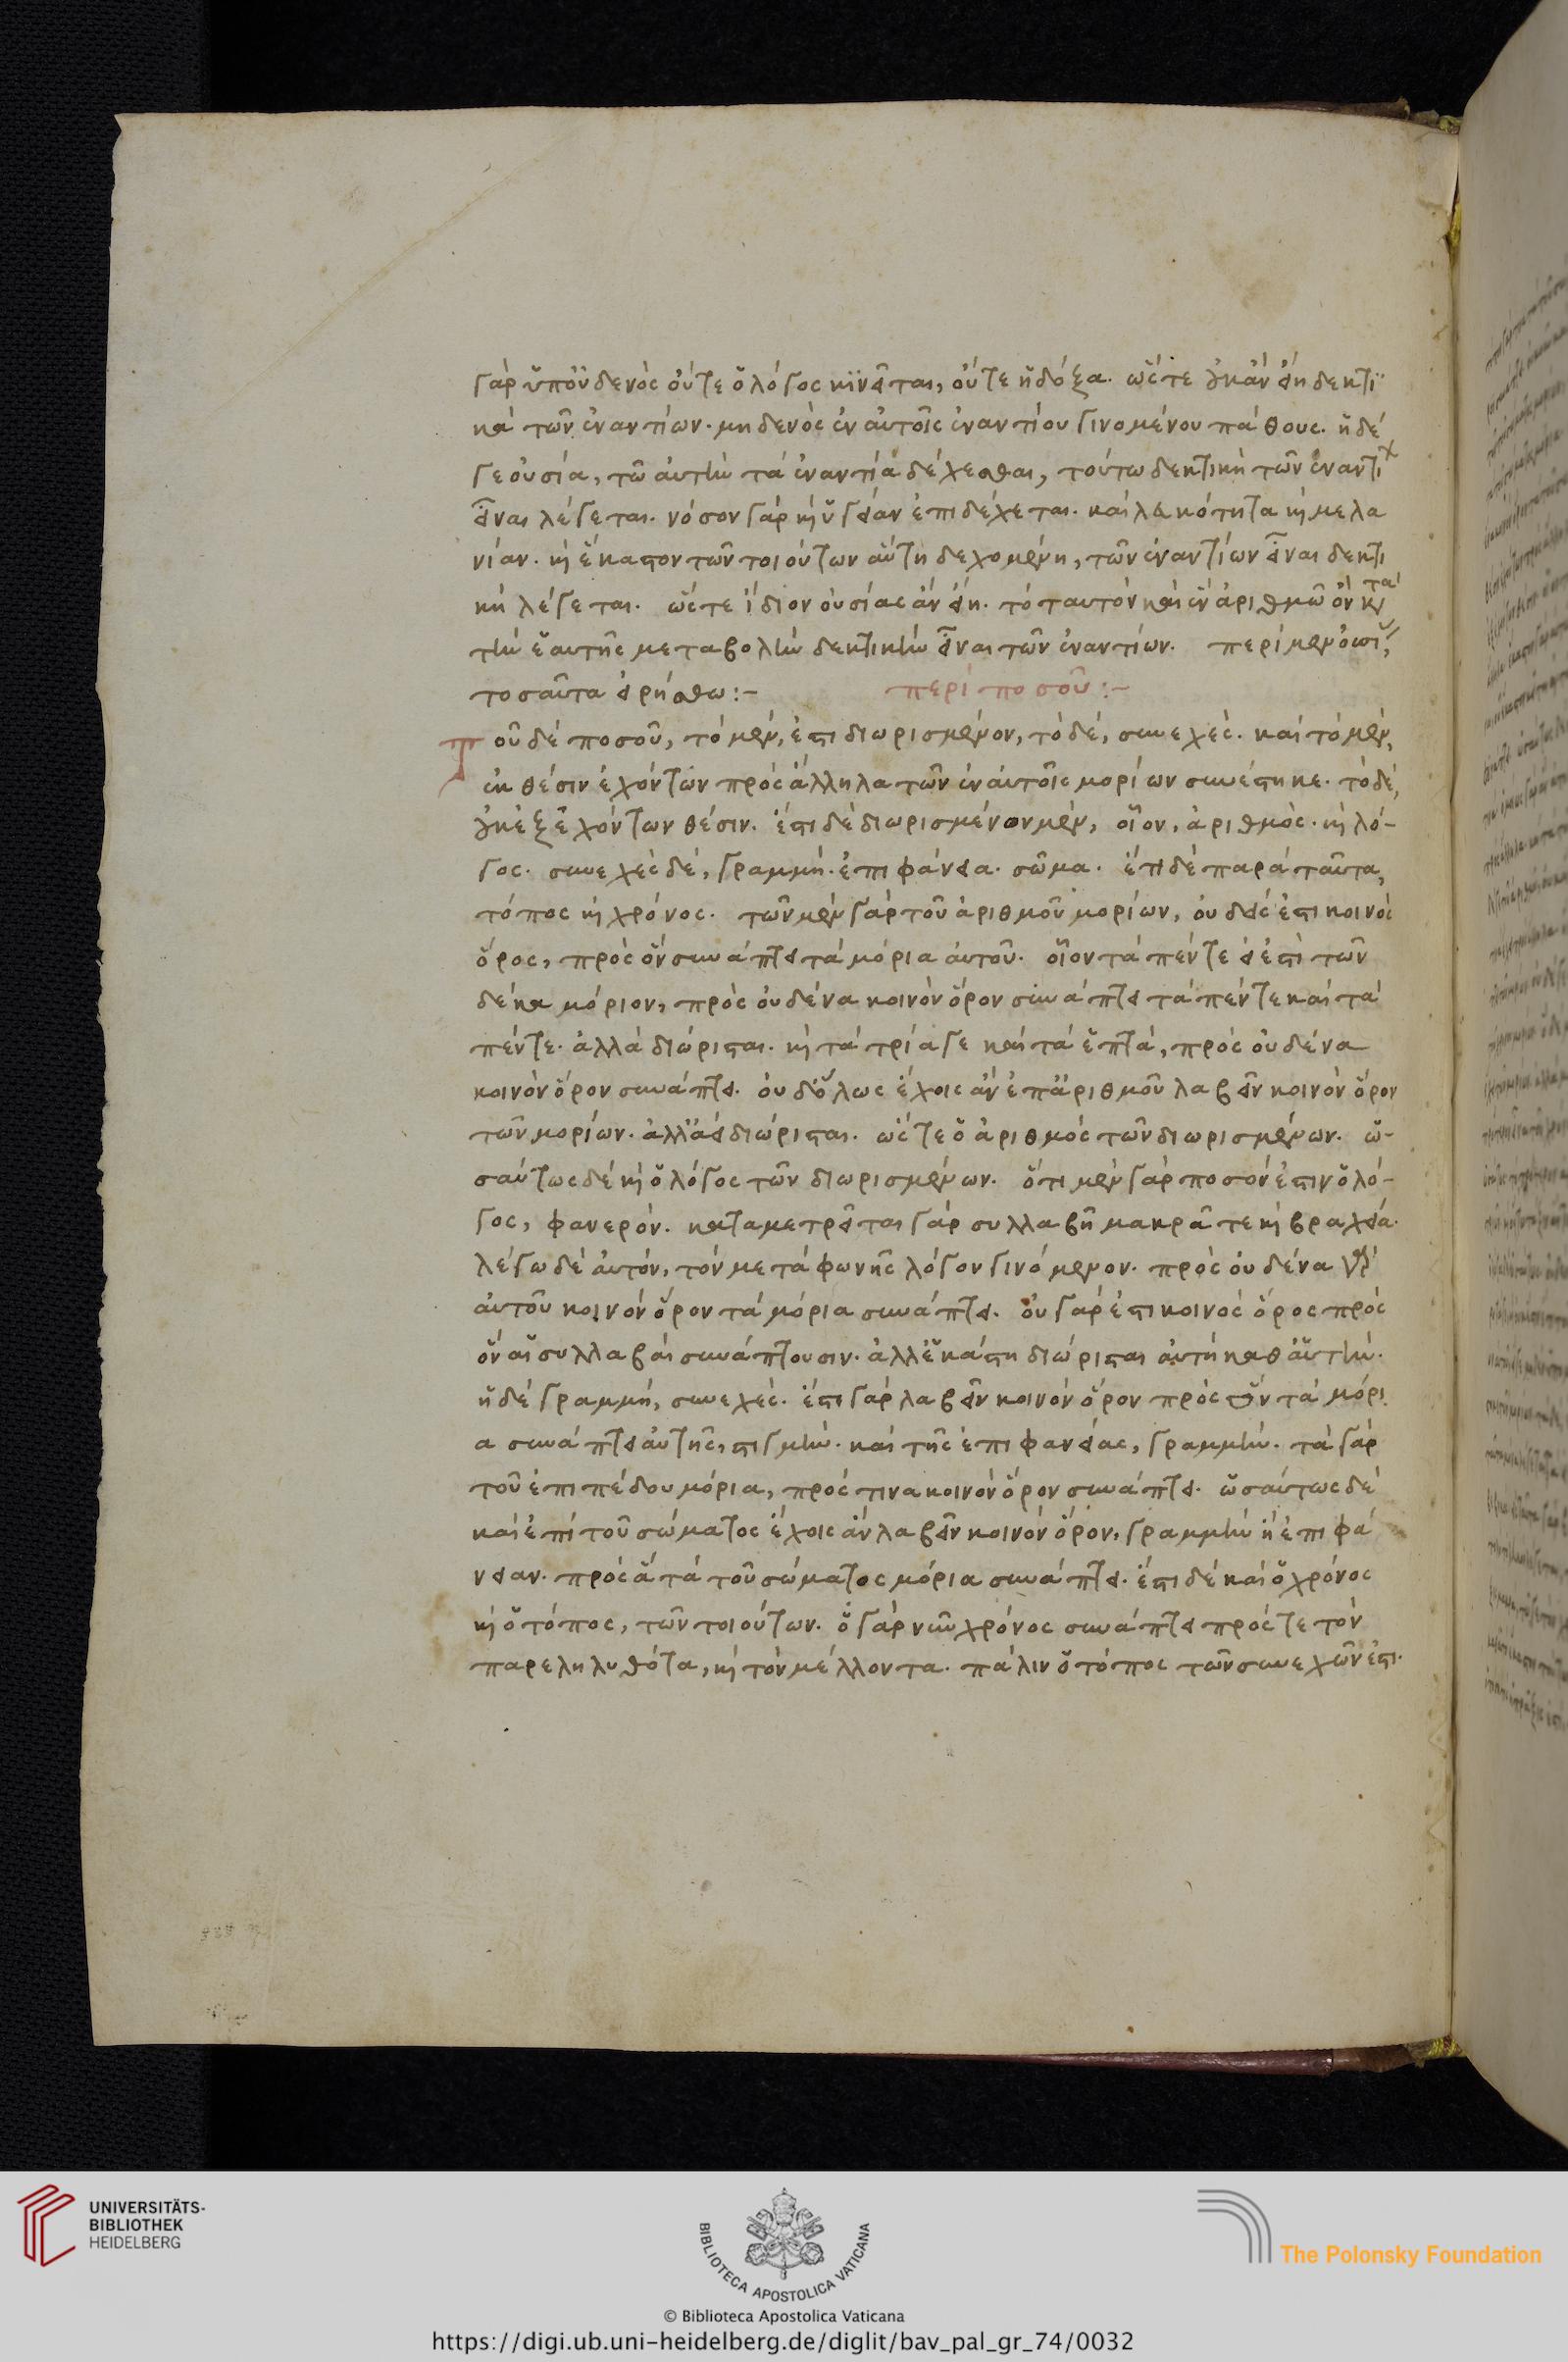 γὰρ ὑπ' οὐδενὸς οὔτε ὁ λόγος κινεῖται, οὔτε ἡ δόξα. ὥστε οὐκ ἂν εἴη δεκτι
κὰ τῶν ἐναντίων. μηδενὸς ἐν αὐτοῖς ἐναντίου γινομένου πάθους. ἡ δέ
γε οὐσία, τῶ αὐτὴν τὰ ἐναντία δέχεσθαι, τούτω δεκτικὴ τῶν ἐναντί
εἶναι λέγεται. νόσον γὰρ καὶ ὑγείαν ἐπιδέχεται. καὶ λευκότητα καὶ μελα
νίαν. καὶ ἕκαστον τῶν τοιούτων αὕτη δεχομένη, τῶν ἐναντίων εἶναι δεκτι
κὴ λέγεται. ὥστε ἴδιον οὐσίας ἂν εἴη. τὸ ταυτὸν καὶ ἓν ἀριθμῶ ὂν κατὰ
τὴν ἑαυτῆς μεταβολὴν δεκτικὴν εἶναι τῶν ἐναντίων. περὶ μὲν οὐσί
τοσαῦτα εἰρήσθω:-
περὶ ποσοῦ:-
Τοῦ δὲ ποσοῦ, τὸ μέν, ἐστι διωρισμένον, τὸ δέ, συνεχές. καὶ τὸ μέν,
ἐκ θέσιν ἐχόντων πρὸς ἄλληλα τῶν ἐν αὐτοῖς μορίων συνέστηκε. τὸ δέ,
οὐκ ἐξ ἐχόντων θέσιν. ἔστι δὲ διωρισμένον μέν, οἷον, ἀριθμὸς. καὶ λό-
γος. συνεχὲς δέ, γραμμή. ἐπιφάνεια. σῶμα. ἔτι δὲ παρὰ ταῦτα,
τόπος καὶ χρόνος. τῶν μὲν γὰρ τοῦ ἀριθμοῦ μορίων, οὐδείς ἐστι κοινὸς
ὅρος, πρὸς ὃν συνάπτει τὰ μόρια αὐτοῦ. οἷον τὰ πέντε εἰ ἐστὶ τῶν
δέκα μόριον, πρὸς οὐδένα κοινὸν ὅρον συνάπτει τὰ πέντε καὶ τὰ
πέντε. ἀλλὰ διώρισται. καὶ τὰ τρία γε καὶ τὰ ἑπτά, πρὸς οὐδένα
κοινὸν ὅρον συνάπτει. οὐδ' ὅλως ἔχοις ἂν ἐπ' ἀριθμοῦ λαβεῖν κοινὸν ὅρον
τῶν μορίων. ἀλλ' ἀεὶ διώρισται. ὥστε ὁ ἀριθμὸς τῶν διωρισμένων. ὡ-
σαύτως δὲ καὶ ὁ λόγος τῶν διωρισμένων. ὅτι μὲν γὰρ ποσόν ἐστιν ὁ λό-
γος, φανερόν. καταμετρεῖται γὰρ συλλαβῆ μακρᾶ τε καὶ βραχεία.
λέγω δὲ αὐτόν, τὸν μετὰ φωνῆς λόγον γινόμενον. πρὸς οὐδένα γὰρ
αὐτοῦ κοινὸν ὅρον τὰ μόρια συνάπτει. οὐ γάρ ἐστι κοινὸς ὅρος πρὸς
ὃν αἱ συλλαβαὶ συνάπτουσιν. ἀλλ' ἑκάστη διώρισται αὐτὴ καθ' αὑτήν.
ἡ δὲ γραμμή, συνεχές. ἔστι γὰρ λαβεῖν κοινὸν ὅρον πρὸς ὃν τὰ μόρι
α συνάπτει αὐτῆς, στιγμήν. καὶ τῆς ἐπιφανείας, γραμμήν. τὰ γὰρ
τοῦ ἐπιπέδου μόρια, πρός τινα κοινὸν ὅρον συνάπτει. ὡσαύτως δὲ
καὶ ἐπὶ τοῦ σώματος ἔχοις ἂν λαβεῖν κοινὸν ὅρον, γραμμὴν ἢ ἐπιφά
νειαν. πρὸς ἃ τὰ τοῦ σώματος μόρια συνάπτει. ἔστι δὲ καὶ ὁ χρόνος
καὶ ὁ τόπος, τῶν τοιούτων. ὁ γὰρ νῦν χρόνος συνάπτει πρός τε τὸν
παρεληλυθότα, καὶ τὸν μέλλοντα. πάλιν ὁ τόπος τῶν συνεχῶν ἐστι.
UNIVERSITÄTS-
BIBLIOTHEK
HEIDELBERG
BIBLIOTECA APOSTOLICA VATICANA
The Polonsky Foundation
© Biblioteca Apostolica Vaticana
https://digi.ub.uni-heidelberg.de/diglit/bav_pal_gr_74/0032